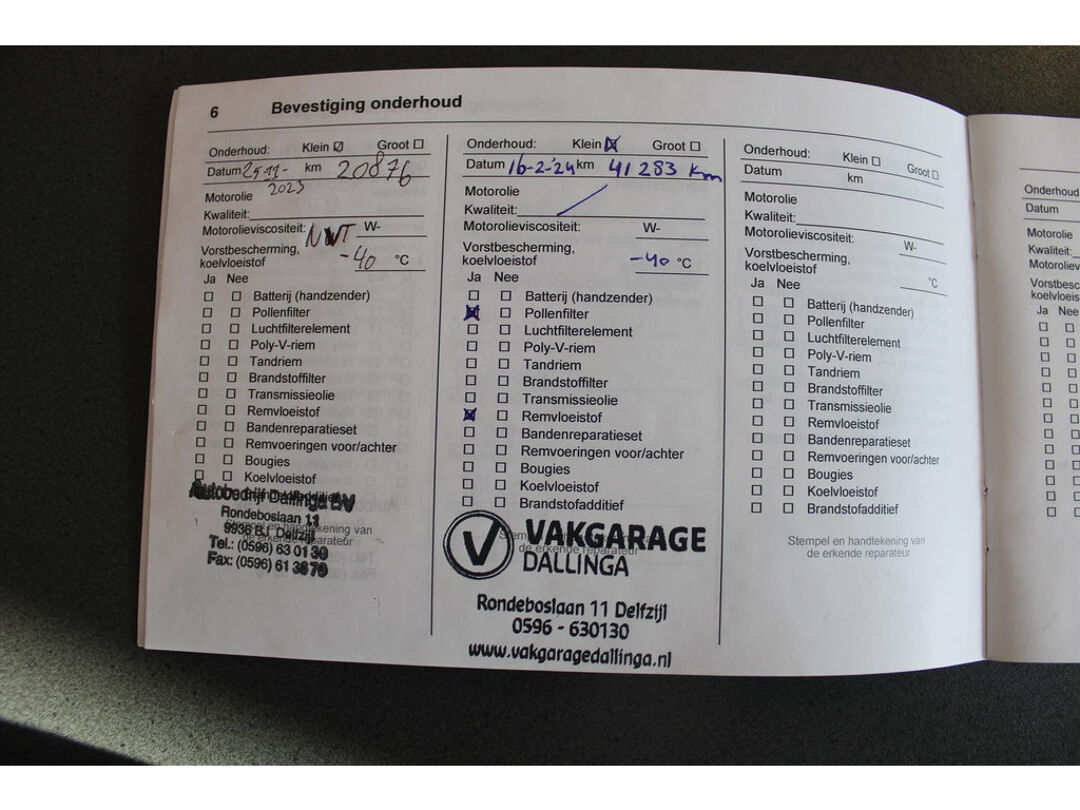 6 Bevestiging onderhoud
Onderhoud: Klein ☑ Groot ☐
Datum 25-11- km 20876
2023
Motorolie
Kwaliteit:
Motorolieviscositeit: W-
Vorstbescherming,
koelvloeistof -40 °C
Ja Nee
☐ ☐ Batterij (handzender)
☐ ☐ Pollenfilter
☐ ☐ Luchtfilterelement
☐ ☐ Poly-V-riem
☐ ☐ Tandriem
☐ ☐ Brandstoffilter
☐ ☐ Transmissieolie
☐ ☐ Remvloeistof
☐ ☐ Bandenreparatieset
☐ ☐ Remvoeringen voor/achter
☐ ☐ Bougies
☐ ☐ Koelvloeistof
Brandstofadditief
Autobedrijf Dallinga BV
Rondeboslaan 11
Stempel en handtekening van
9936 BJ Delfzijl
de erkende reparateur
Tel.: (0596) 63 01 30
Fax: (0596) 61 3879
Onderhoud: Klein ☒ Groot ☐
Datum 16-2-'24 km 41283 Km
Motorolie
Kwaliteit:
Motorolieviscositeit: W-
Vorstbescherming,
koelvloeistof -40 °C
Ja Nee
☐ ☐ Batterij (handzender)
☒ ☐ Pollenfilter
☐ ☐ Luchtfilterelement
☐ ☐ Poly-V-riem
☐ ☐ Tandriem
☐ ☐ Brandstoffilter
☐ ☐ Transmissieolie
☒ ☐ Remvloeistof
☐ ☐ Bandenreparatieset
☐ ☐ Remvoeringen voor/achter
☐ ☐ Bougies
☐ ☐ Koelvloeistof
☐ ☐ Brandstofadditief
Stempel en handtekening van
de erkende reparateur
V VAKGARAGE
DALLINGA
Rondeboslaan 11 Delfzijl
0596 - 630130
www.vakgaragedallinga.nl
Onderhoud: Klein ☐ Groot ☐
Datum km
Motorolie
Kwaliteit:
Motorolieviscositeit: W-
Vorstbescherming,
koelvloeistof °C
Ja Nee
☐ ☐ Batterij (handzender)
☐ ☐ Pollenfilter
☐ ☐ Luchtfilterelement
☐ ☐ Poly-V-riem
☐ ☐ Tandriem
☐ ☐ Brandstoffilter
☐ ☐ Transmissieolie
☐ ☐ Remvloeistof
☐ ☐ Bandenreparatieset
☐ ☐ Remvoeringen voor/achter
☐ ☐ Bougies
☐ ☐ Koelvloeistof
☐ ☐ Brandstofadditief
Stempel en handtekening van
de erkende reparateur
Onderhoud
Datum
Motorolie
Kwaliteit:
Motoroliev
Vorstbesc
koelvloeis
Ja Nee